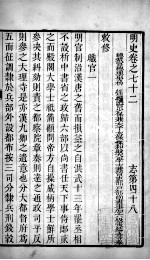 明史卷之七十二 志第四十八
敕修
職官一
明官制沿漢唐之舊而損益之自洪武十三年罷丞相
不設析中書省之政歸六部以尚書任天下事侍郎貳
之而殿閣大學士祇備顧問帝方自操威柄學士鮮所
參決其糾劾則責之都察院章奏則達之通政司平反
則參之大理寺是亦漢九卿之遺意也分大都督府為
五而征調隸於兵部外設都布按三司分隸兵刑錢穀